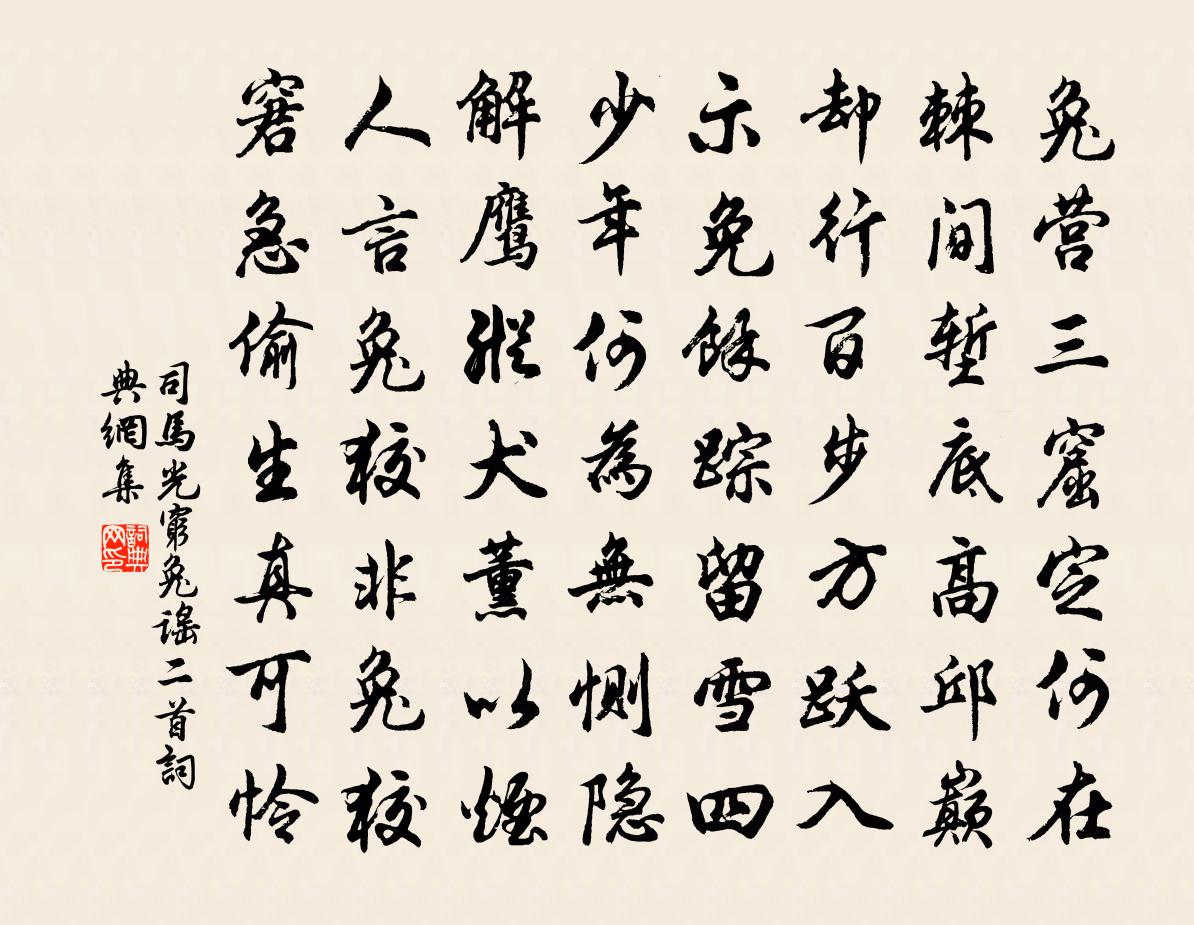 兔营三窟定何在
棘间堑底高邱巅
却行百步方跃入
示免馀踪留雪四
少年何為無恻隐
解鹰縱犬薰以煙
人言兔狡非兔狡
窘急偷生真可怜
司馬光窮兔謠二首詞
典網集
詞典
网印